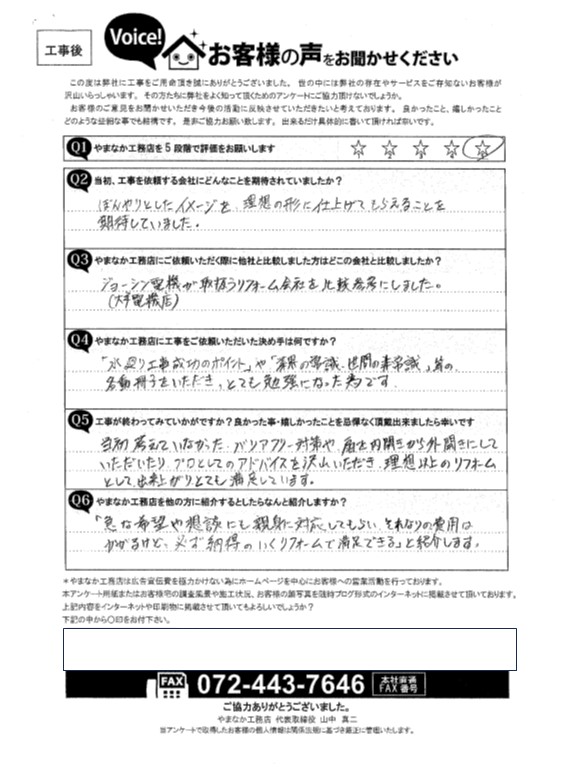 工事後
Voice!
お客様の声をお聞かせください
この度は弊社に工事をご用命頂き誠にありがとうございました。 世の中には弊社の存在やサービスをご存知ないお客様が
沢山いらっしゃいます。 その方たちに弊社をよく知って頂くためのアンケートにご協力頂けないでしょうか。
お客様のご意見をお聞かせいただき今後の活動に反映させていただきたいと考えております。 良かったこと、嬉しかったこと
どのような些細な事でも結構です。 是非ご協力お願い致します。 出来るだけ具体的に書いて頂ければ幸いです。
Q1 やまなか工務店を5段階で評価をお願いします
Q2 当初、工事を依頼する会社にどんなことを期待されていましたか?
ぼんやりとしたイメージを、理想の形に仕上げてもらえることを
期待していました。
Q3 やまなか工務店にご依頼いただく際に他社と比較しました方はどこの会社と比較しましたか?
ジョーシン電機が取扱うリフォーム会社を比較参考にしました。
(大手電機店)
Q4 やまなか工務店に工事をご依頼いただいた決め手は何ですか?
「水廻り工事成功のポイント」や「業界の常識、世間の非常識」等の
各動冊子をいただき、とても勉強になった為です。
Q5 工事が終わってみていかがですか?良かった事・嬉しかったことを忌憚なく頂戴出来ましたら幸いです
当初考えていなかったバリアフリー対策や、扉を内開きから外開きにして
いただいたり、プロとしてのアドバイスを沢山いただき、理想以上のリフォーム
として出来上がりとても満足しています。
Q6 やまなか工務店を他の方に紹介するとしたらなんと紹介しますか?
「急な希望や相談にも親身に対応してもらい、それなりの費用は
かかるけど、必ず納得のいくリフォームで満足できる」と紹介します。
*やまなか工務店は広告宣伝費を極力かけない為にホームページを中心にお客様への営業活動を行っております。
本アンケート用紙またはお客様宅の調査風景や施工状況、お客様の顔写真を随時ブログ形式のインターネットに掲載させて頂いております。
上記内容をインターネットや印刷物に掲載させて頂いてもよろしいでしょうか?
下記の中から〇印をお付下さい。
FAX 072-443-7646 本社直通 FAX番号
ご協力ありがとうございました。
やまなか工務店 代表取締役 山中 真二
当アンケートで取得したお客様の個人情報は関係法規に基づき厳正に管理いたします。